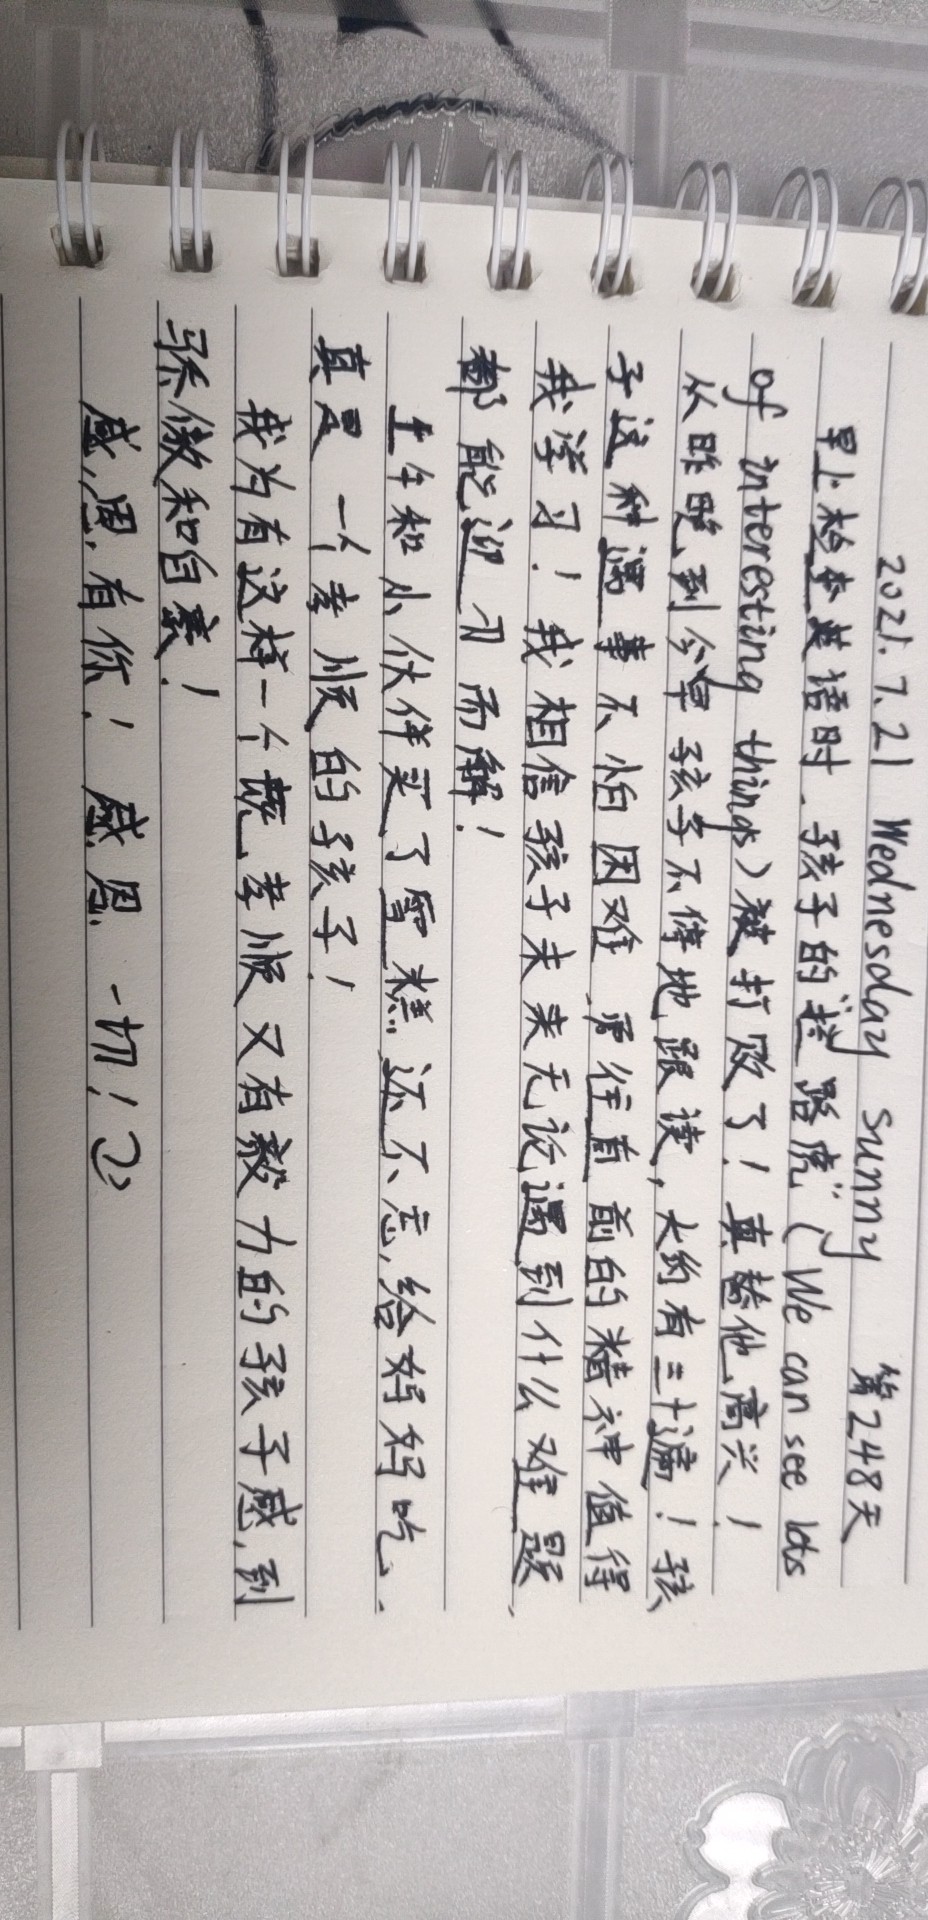 2021.7.21 Wednesday sunny 第248天
早上检查英语时，孩子的“拦路虎”（We can see lots
of interesting things）被打败了！真替他高兴！
从昨晚到今早孩子不停地跟读，大约有三十遍！孩
子这种遇事不怕困难，勇往直前的精神值得
我学习！我相信孩子未来无论遇到什么难题，
都能迎刃而解！
上午和小伙伴买了雪糕，还不忘给妈妈吃，
真是一个孝顺的孩子！
我为有这样一个既孝顺又有毅力的孩子感到
骄傲和自豪！
感恩有你！感恩一切！